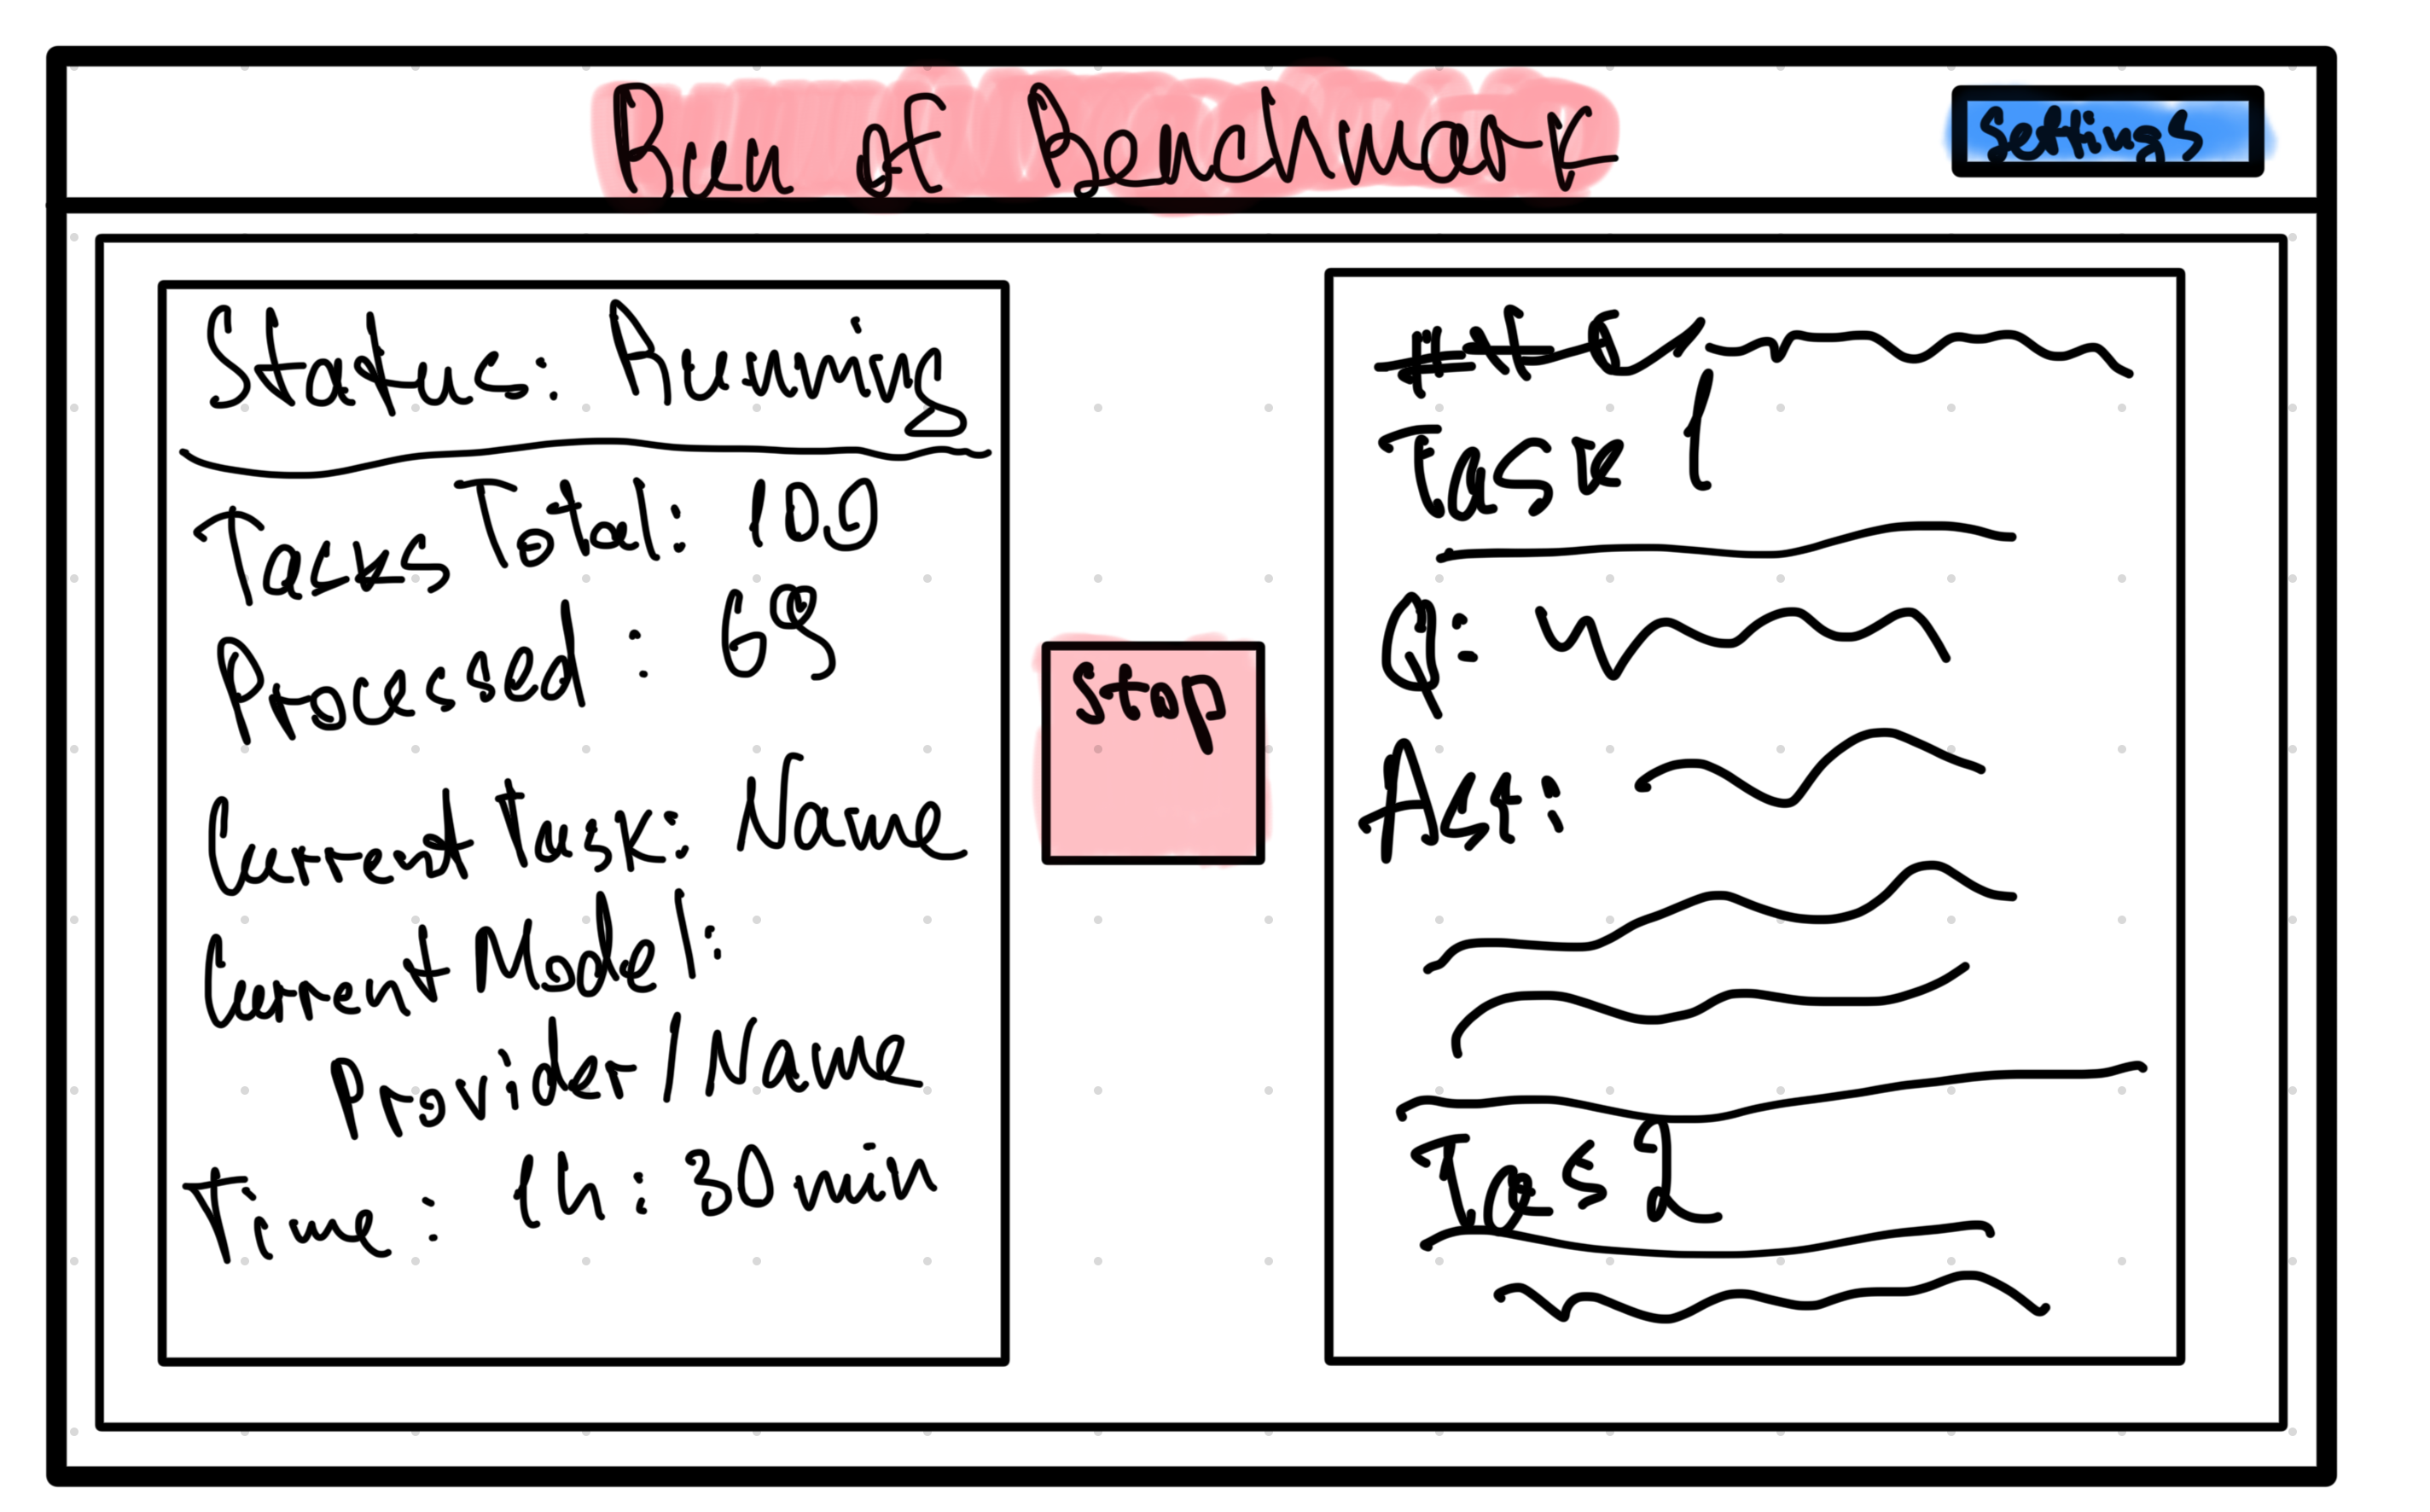 Run of Benchmark
Settings
Status: Running
Tasks Total: 100
Processed: 69
Current Task: Name
Current Model:
Provider/Name
Time: 1h: 30min
Stop
Task 1
Q:
Ast:
Tas 2